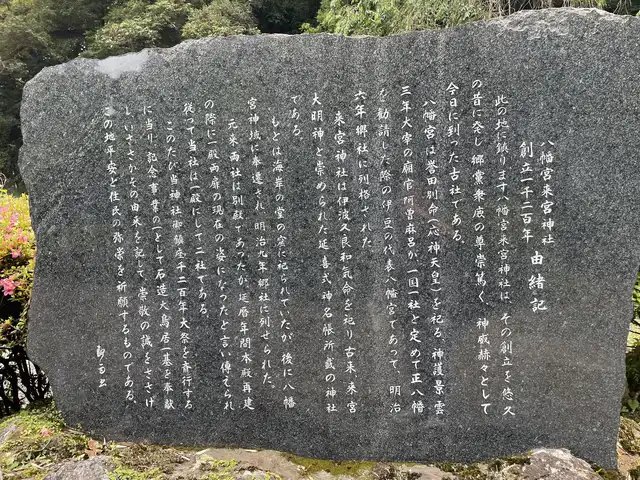 八幡宮来宮神社
創立一千二百年 由緒記
此の地に鎮ります八幡宮来宮神社は、その創立を悠久
の昔に発し郷黨衆庶の尊崇篤く、神威赫々として
今日に到った古社である。
八幡宮は誉田別命(応神天皇)を祀る。神護景雲
三年大帝の廟官阿曽麻呂が一国一社と定めて正八幡
を勧請した際の伊豆の代表八幡宮であって、明治
六年郷社に列格された。
来宮神社は伊波久良和気命を祀り古来来宮
大明神と崇められた延喜式神名帳所載の神社
である。
もとは海岸の堂の窟に祀られていたが後に八幡
宮神域に奉遷され、明治九年郷社に列せられた。
元来両社は別殿であったが延暦年間本殿再建
の際に一殿両扉の現在の姿になったと言い傳えられ
従って当社は一殿にして二社である。
このたび当神社御鎮座千二百年大祭を斉行する
に当り、記念事業の一として石造大鳥居一基を奉献
しいささかその由来を記して崇敬の誠をささげ
この地平安と住民の弥栄を祈願するものである。